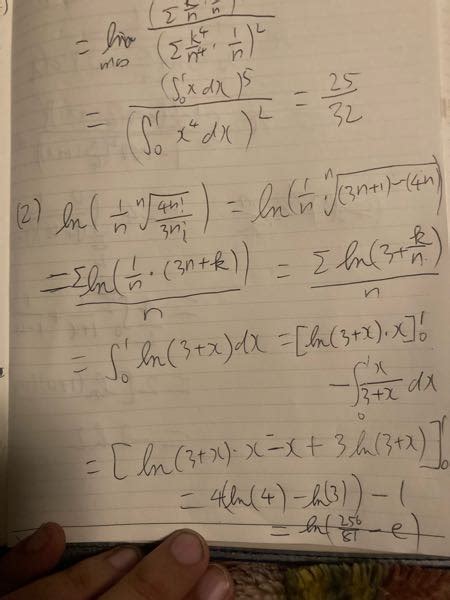 (Σ k/n · 1/n)
= lim n→∞ / (Σ k⁴/n⁴ · 1/n)²
= (∫₀¹ x dx)⁵ / (∫₀¹ x⁴ dx)² = 25/32
(2) ln(1/n ⁿ√(4n!/3n!)) = ln(1/n · ⁿ√((3n+1)–(4n)))
= Σln(1/n · (3n+k)) / n = Σ ln(3+k/n) / n
= ∫₀¹ ln(3+x)dx = [ln(3+x)·x]₀¹
− ∫₀¹ x/(3+x) dx
= [ln(3+x)·x − x + 3 ln(3+x)]₀¹
= 4(ln(4) − ln(3)) − 1
= ln(256/81 − e)